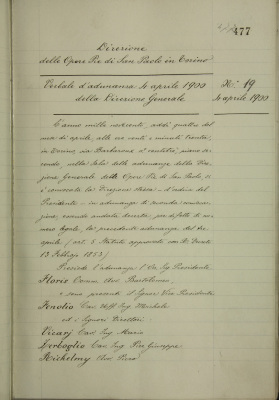 477
Direzione
delle Opere Pie di San Paolo in Torino
Verbale d'adunanza 4 aprile 1900
della Direzione Generale
N.° 19
4 aprile 1900
L'anno mille novecento, addì quattro del
mese di aprile, alle ore venti e minuti trenta,
in Torino, via Barbaroux al civico, piano se-
condo, nella Sala delle adunanze della Dire-
zione Generale delle Opere Pie di San Paolo, si
è convocata la Direzione stessa - d'ordine del
Presidente - in adunanza di seconda convoca-
zione, essendo andata deserta, per difetto di nu-
mero legale, la precedente adunanza del
aprile (art. 5 Statuto approvato con R. Decreto
13 Febbraio 1853)
Presiede l'adunanza l'Ill. Sig. Presidente
Florio Comm. Avv. Bartolomeo,
e sono presenti il Signor Vice Presidente
Fenolio Cav. Uff. Ing. Michele
ed i Signori Direttori
Vicarj Cav. Ing. Mario
Derboglio Cav. Ing. Pier Giuseppe
Rickelmy Avv. Piero